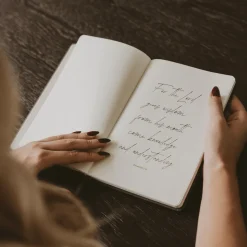 For the Lord
gives wisdom
from his mouth
come knowledge
and understanding